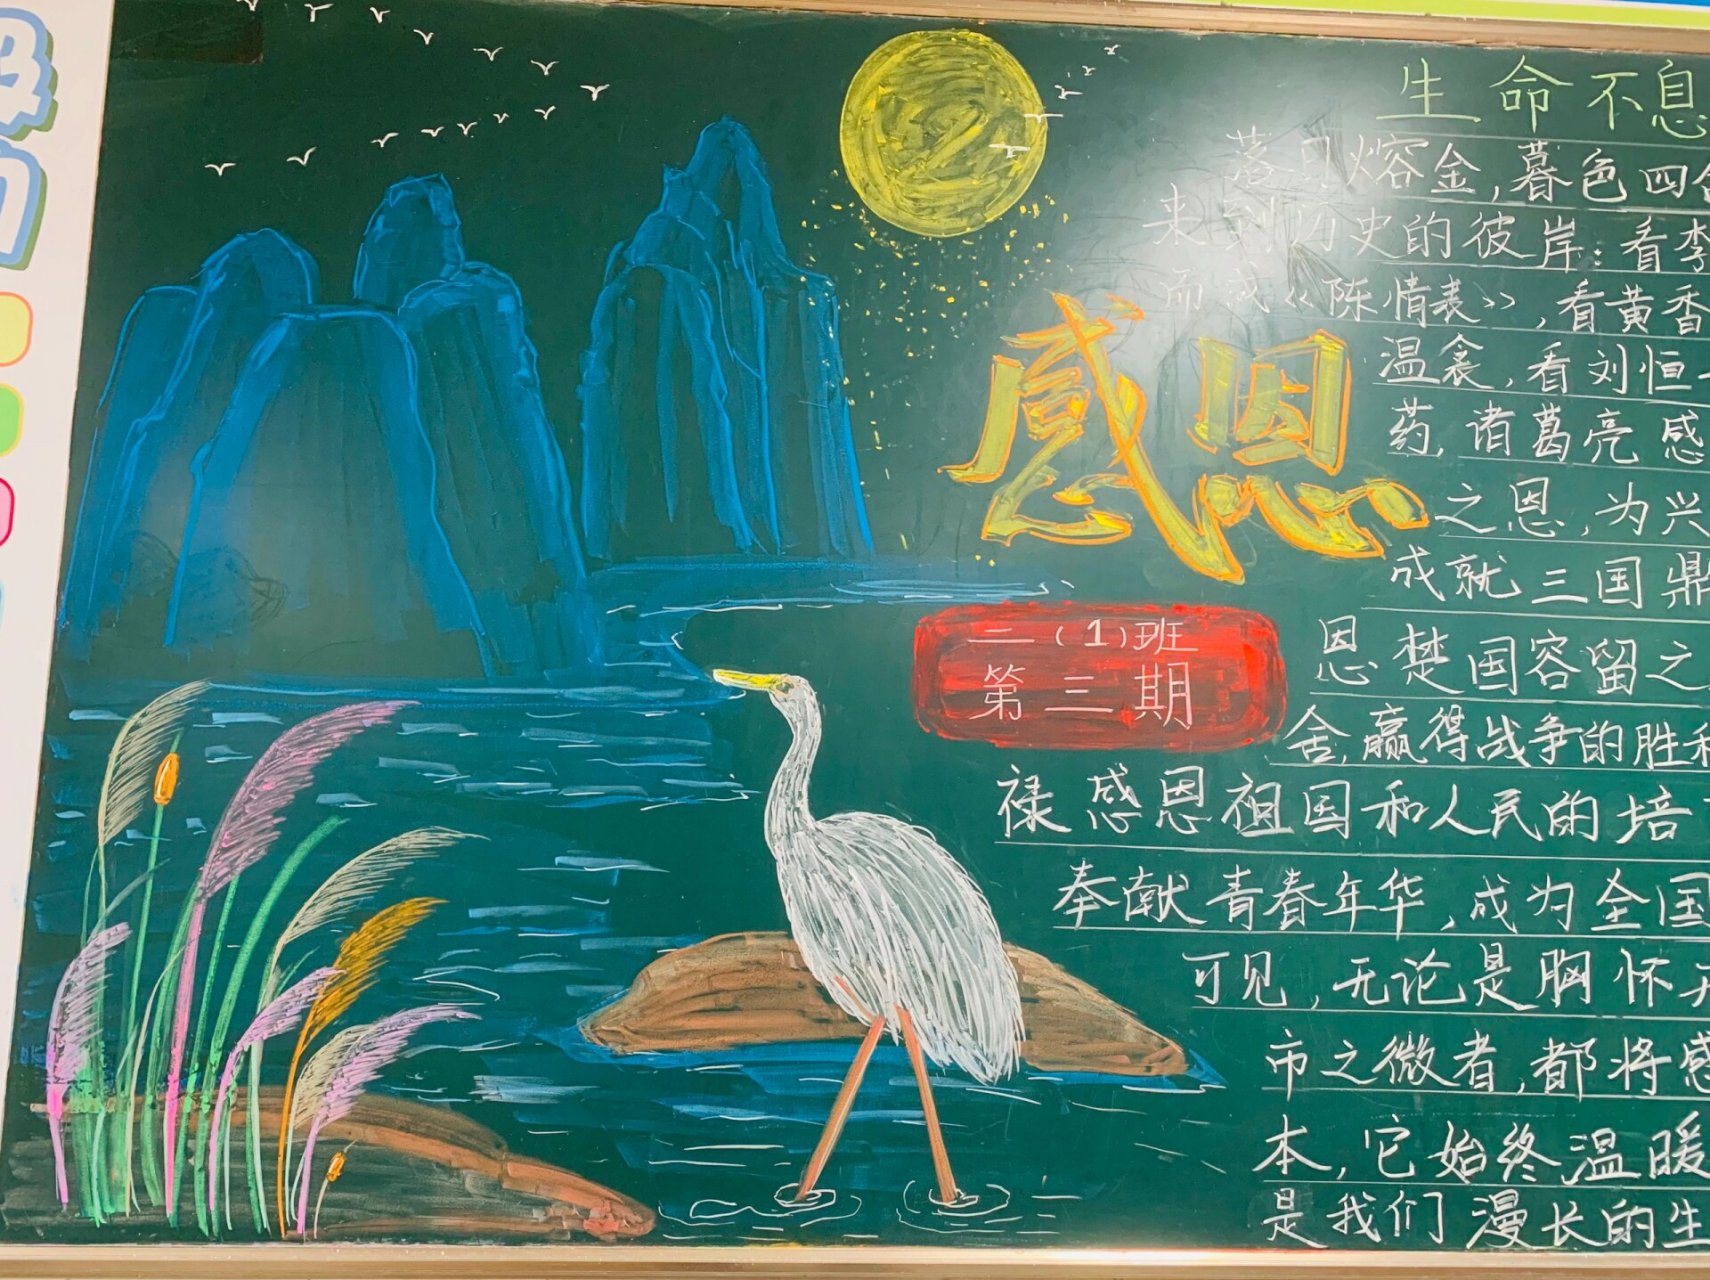 生命不息
落日熔金，暮色四合
来到历史的彼岸：看李
而成《陈情表》，看黄香
温衾，看刘恒
药，诸葛亮感
之恩，为兴
成就三国鼎
恩楚国容留之
舍，赢得战争的胜利
禄感恩祖国和人民的培
奉献青春年华，成为全国
可见，无论是胸怀天
市之微者，都将感
本，它始终温暖
是我们漫长的生
感恩
二（1）班
第三期